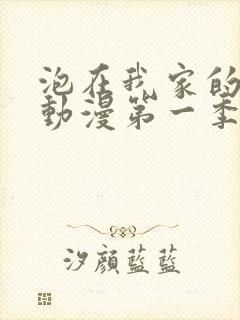 泡在我家的
動漫第一季
汐顔藍藍